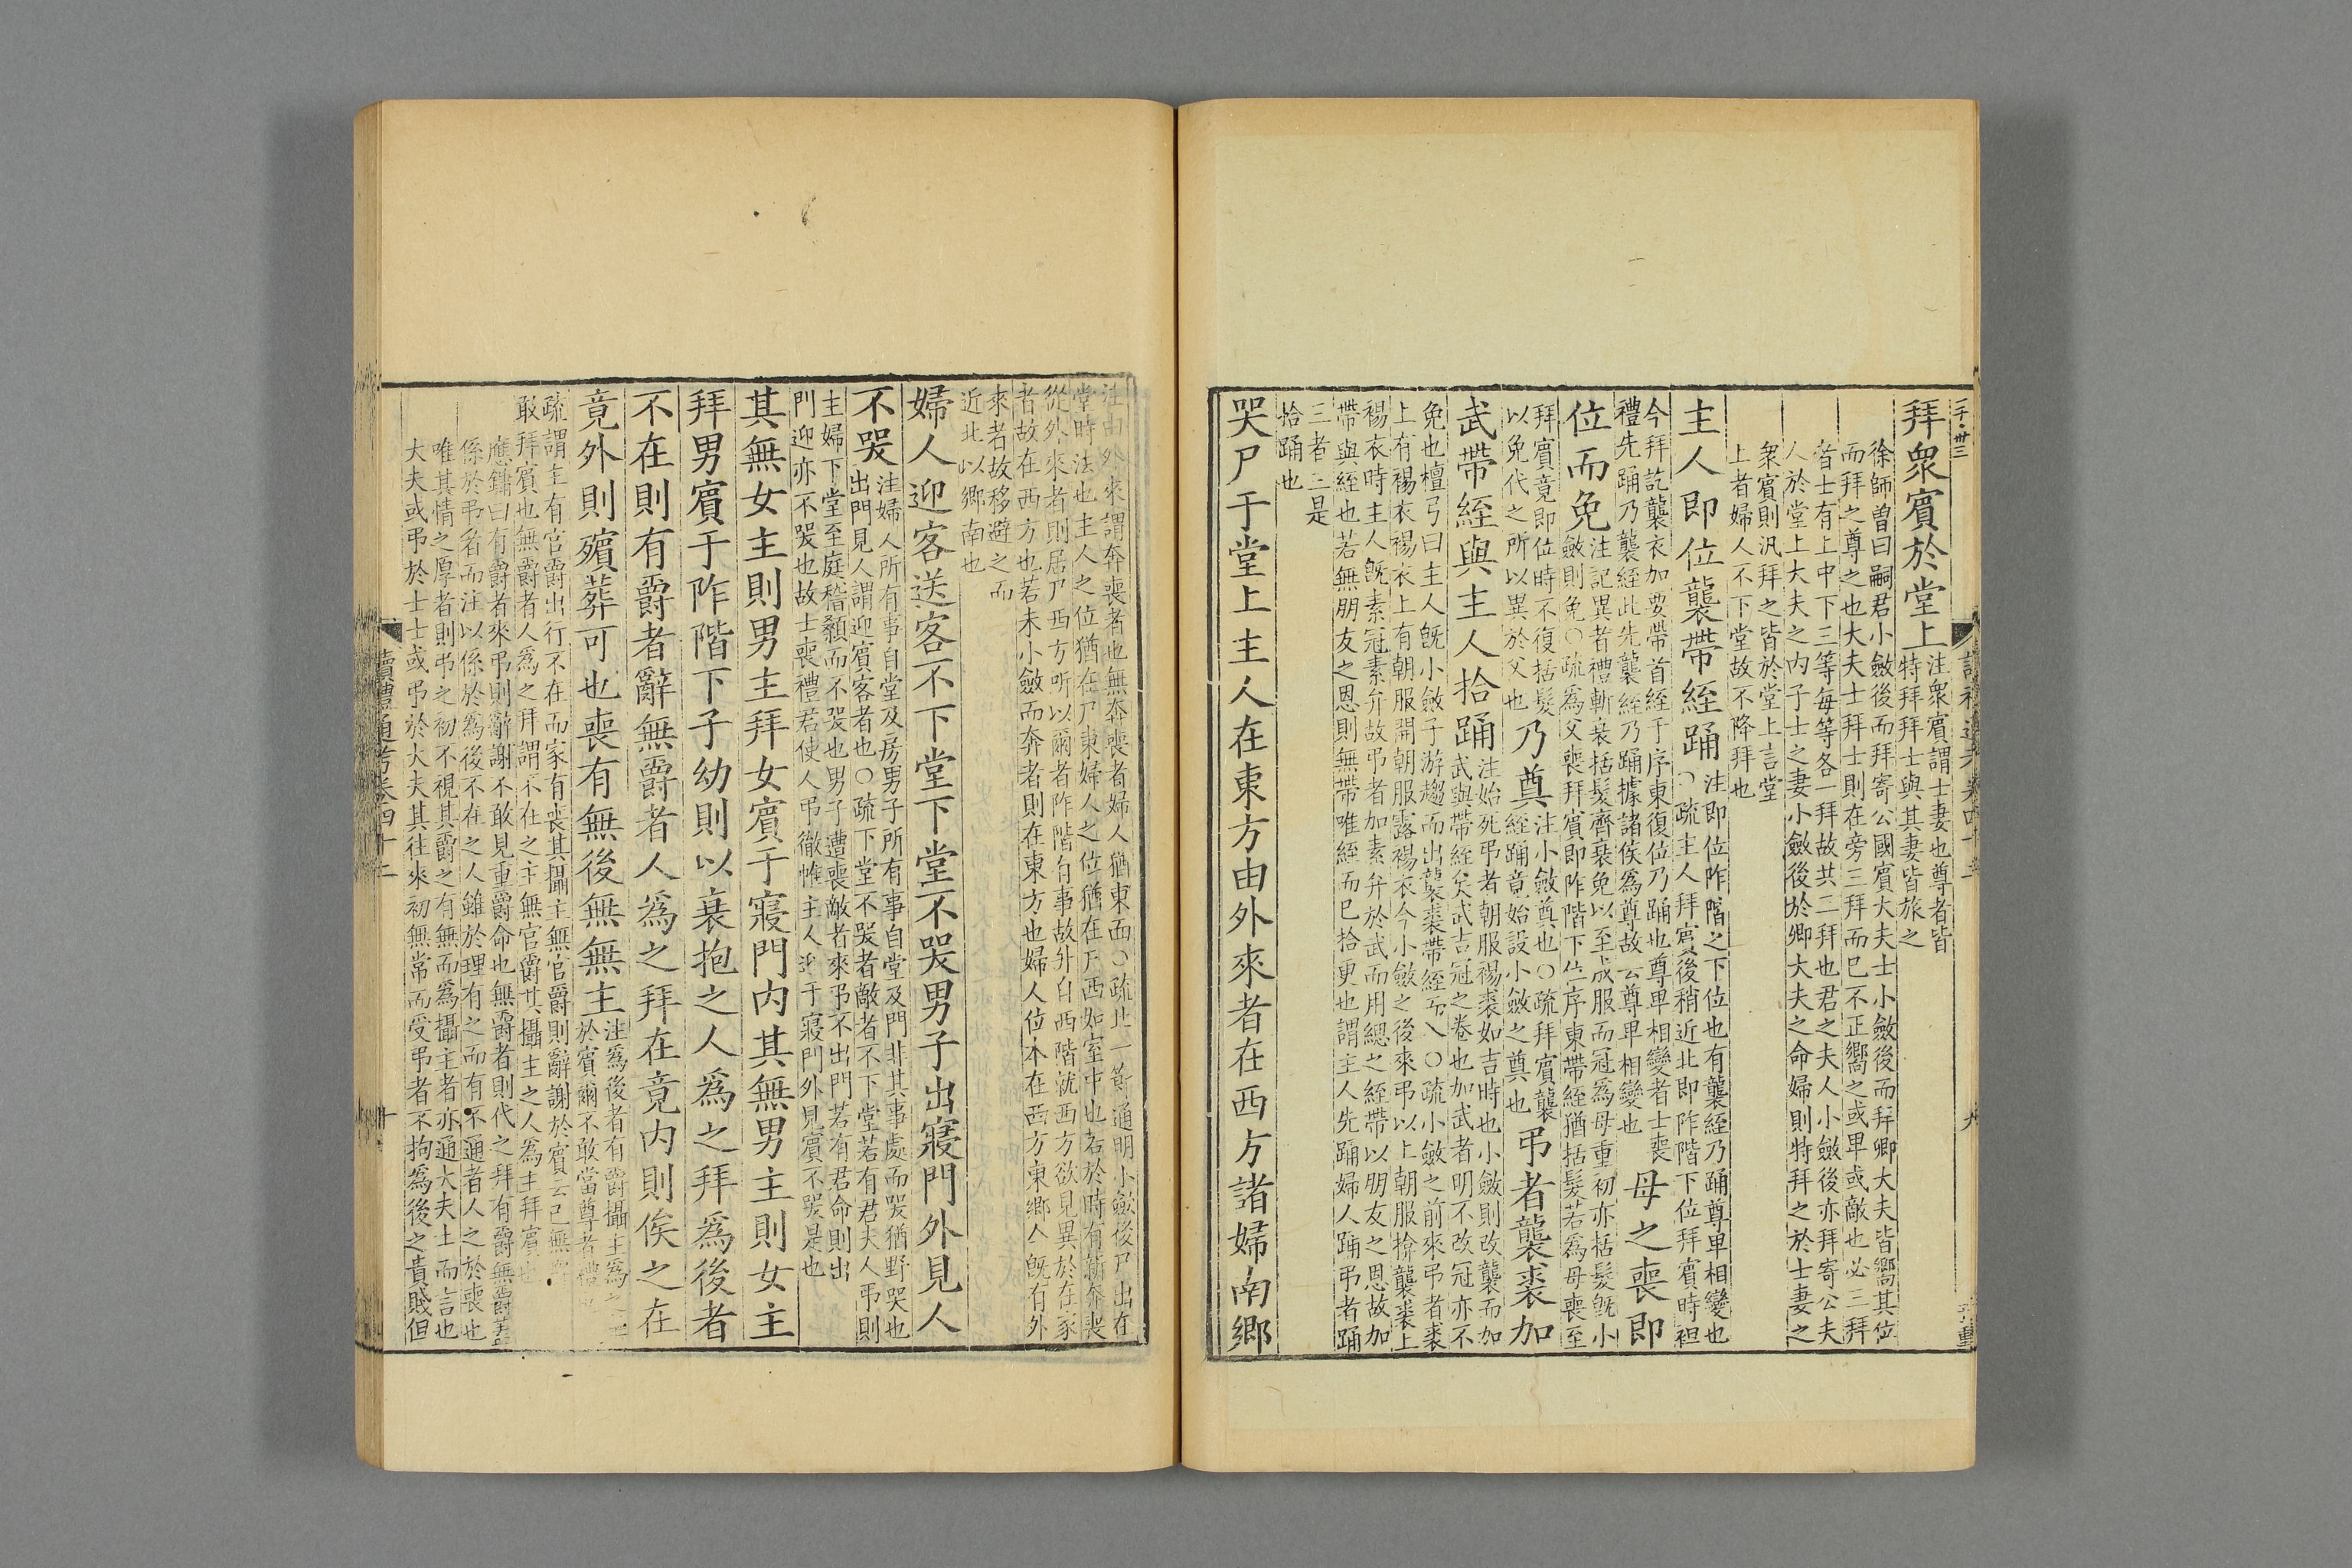 拜衆賓於堂上
注衆賓謂士妻也尊者皆
特拜拜士與其妻皆旅之
徐師曾曰嗣君小斂後而拜寄公國賓大夫士小斂後而拜卿大夫皆嚮其位
而拜之尊之也大夫士拜士則在旁三拜而已不正嚮之或卑或敵也必三拜
者士有上中下三等每等各一拜故共三拜也君之夫人小斂後亦拜寄公夫
人於堂上大夫之內子士之妻小斂後於卿大夫之命婦則特拜之於士妻之
衆賓則汎拜之皆於堂上言堂
上者婦人不下堂故不降拜也
主人即位襲帶絰踊
注即位阼階之下位也有襲絰乃踊尊卑相變也
○疏主人拜賓後稍近北即阼階下位拜賓時袒
今拜訖襲衣加要帶首絰于序東復位乃踊也尊卑相變者士喪
禮先踊乃襲絰此先襲絰乃踊據諸侯爲尊故云尊卑相變也
母之喪即
位而免
注記異者禮斬衰括髮齊衰免以至成服而冠爲母重初亦括髮旣小
斂則免○疏爲父喪拜賓即阼階下位序東帶絰猶括髮若爲母喪至
拜賓竟即位時不復括髮
以免代之所以異於父也
乃奠
注小斂奠也○疏拜賓襲
絰踊竟始設小斂之奠也
弔者襲裘加
武帶絰與主人拾踊
注始死弔者朝服裼裘如吉時也小斂則改襲而加
武與帶絰矣武吉冠之卷也加武者明不改冠亦不
免也檀弓曰主人旣小斂子游趨而出襲裘帶絰而入○疏小斂之前來弔者裘
上有裼衣裼衣上有朝服開朝服露裼衣今小斂之後來弔以上朝服揜襲裘上
裼衣時主人旣素冠素弁故弔者加素弁於武而用總之絰帶以朋友之恩故加
帶與絰也若無朋友之恩則無帶唯絰而已拾更也謂主人先踊婦人踊弔者踊
三者三是
拾踊也
哭尸于堂上主人在東方由外來者在西方諸婦南鄉
注由外來謂奔喪者也無奔喪者婦人猶東面○疏此一節通明小斂後尸出在
堂時法也主人之位猶在尸東婦人之位猶在尸西如室中也若於時有新奔喪
從外來者則居尸西方所以爾者阼階有事故升自西階就西方欲見異於在家
者故在西方也若未小斂而奔者則在東方也婦人位本在西方東鄉今旣有外
來者故移避之而
近北以鄉南也
婦人迎客送客不下堂下堂不哭男子出寢門外見人
不哭
注婦人所有事自堂及房男子所有事自堂及門非其事處而哭猶野哭也
出門見人謂迎賓客者也○疏下堂不哭者敵者不下堂若有君夫人弔則
主婦下堂至庭稽顙而不哭也男子遭喪敵者來弔不出門若有君命則出
門迎亦不哭也故士喪禮君使人弔徹帷主人迎于寢門外見賓不哭是也
其無女主則男主拜女賓于寢門內其無男主則女主
拜男賓于阼階下子幼則以衰抱之人爲之拜爲後者
不在則有爵者辭無爵者人爲之拜在竟內則俟之在
竟外則殯葬可也喪有無後無無主
注爲後者有爵攝主爲之
於賓爾不敢當尊者禮也
疏謂主有官爵出行不在而家有喪其攝主無官爵則辭謝於賓云己無爵
敢拜賓也無爵者人爲之拜謂不在之主無官爵其攝主之人爲主拜賓也
應鏞曰有爵者來弔則辭謝不敢見重爵命也無爵者則代之拜有爵無爵
係於弔者而注以係於爲後不在之人雖於理有之而有不通者人之於喪也
唯其情之厚者則弔之初不視其爵之有無而爲攝主者亦通大夫士而言也
大夫或弔於士士或弔於大夫其往來初無常而受弔者不拘爲後之貴賤但
讀禮通考卷四十二
十